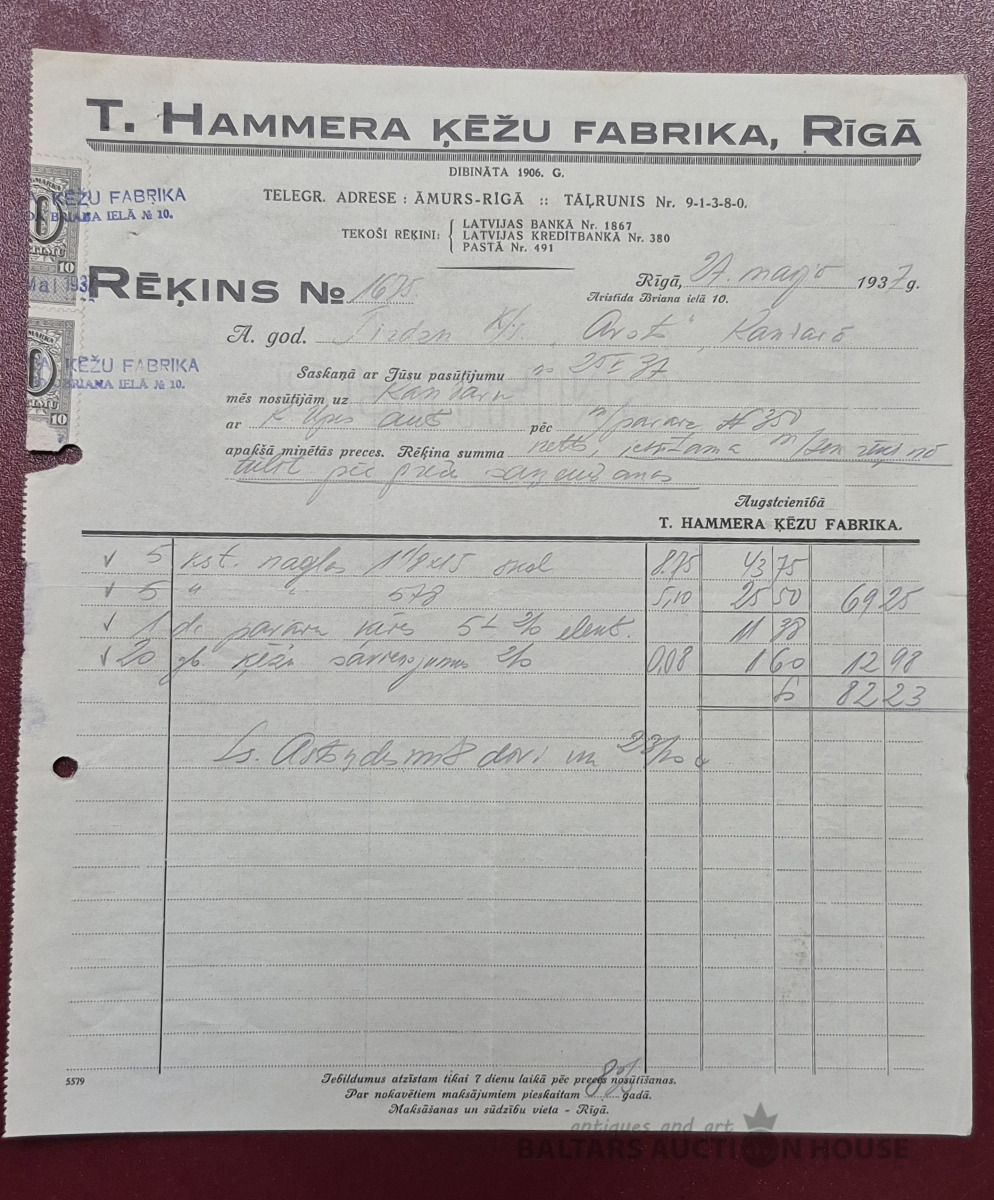 T. HAMMERA ĶĒŽU FABRIKA, RĪGĀ
DIBINĀTA 1906. G.
TELEGR. ADRESE : ĀMURS-RĪGĀ :: TĀĻRUNIS Nr. 9-1-3-8-0.
TEKOŠI RĒĶINI:
LATVIJAS BANKĀ Nr. 1867
LATVIJAS KREDITBANKĀ Nr. 380
PASTĀ Nr. 491
ĶĒŽU FABRIKA
BRIANA IELĀ № 10.
10
RĒĶINS № 1675
Rīgā, 27. maijā 1937 g.
Aristīda Briana ielā 10.
A. god.
ĶĒŽU FABRIKA
BRIANA IELĀ № 10.
10
Saskaņā ar Jūsu pasūtījumu no 25 V 37
mēs nosūtījām uz Kandavu
ar pēc
apakšā minētās preces. Rēķina summa netto,
tūlīt pēc preču saņemšanas
Augstcienībā
T. HAMMERA ĶĒŽU FABRIKA.
5 kst. naglas 8.75 43 75
5 " " 5,10 25 50 69 25
1 11 38
20 gb. ķēžu savienojumus 0,08 1 60 12 98
Ls 82 23
Ls. Astoņdesmit divi un 23/100
5579
Iebildumus atzīstam tikai 7 dienu laikā pēc preces nosūtīšanas.
Par nokavētiem maksājumiem pieskaitam 8% gadā.
Maksāšanas un sūdzību vieta - Rīgā.
antiques and art
BALTARS AUCTION HOUSE